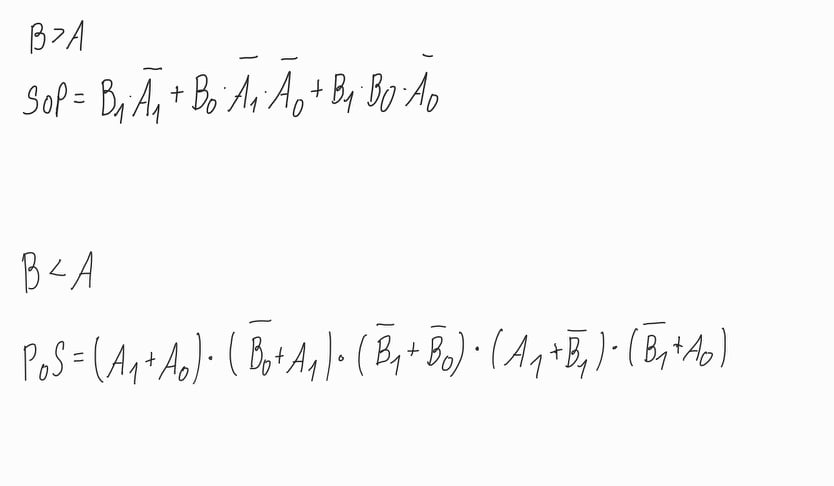 B>A
SoP = B₁·A̅₁ + B₀·A̅₁·A̅₀ + B₁·B0·A̅₀
B<A
P₀S = (A₁+A₀)·(B̅₀+A₁)·(B̅₁+B̅₀)·(A₁+B̅₁)·(B̅₁+A₀)